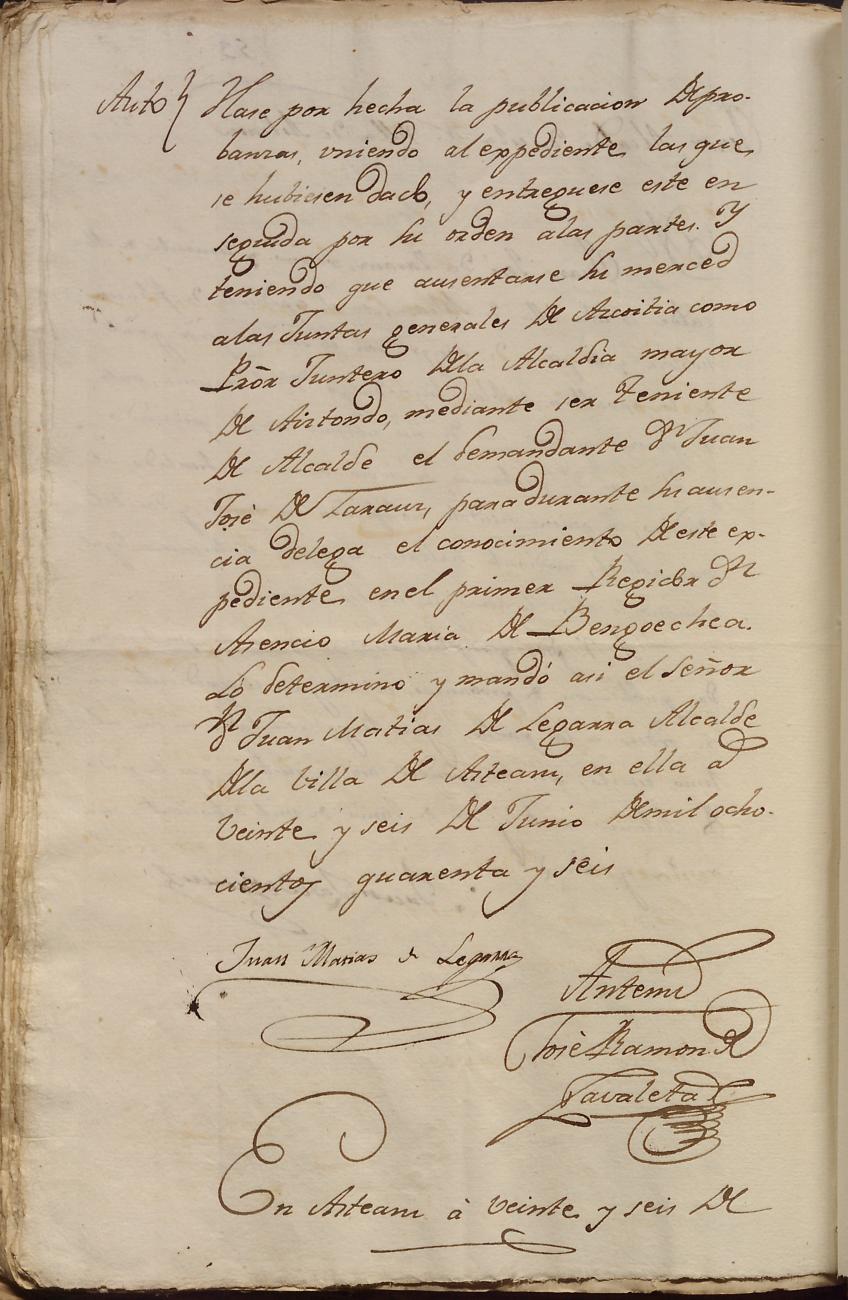 Auto} Hase por hecha la publicacion De pro-
banzas, vniendo al expediente las que
se hubiesen dado, y entreguese este en
seguida por su orden alas partes. Y
teniendo que ausentarse su merced
alas Juntas generales De Azcoitia como
Prõr Juntero Dela Alcaldia mayor
De Aiztondo, mediante ser Teniente
De Alcalde el demandante Dn Juan
José De Zarauz, para durante su ausen-
cia delega el conocimiento De este ex-
pediente en el primer Regidor Dn
Asencio Maria De Bengoechea.
Lo determinó y mandó asi el Señor
Dn Juan Matias De Legarra Alcalde
Dela Villa De Asteasu, en ella a
veinte y seis De Junio De mil ocho-
cientos quarenta y seis
Juan Matias de Legarra
Antemi
José Ramon de
Zavaleta
En Asteasu à veinte y seis De